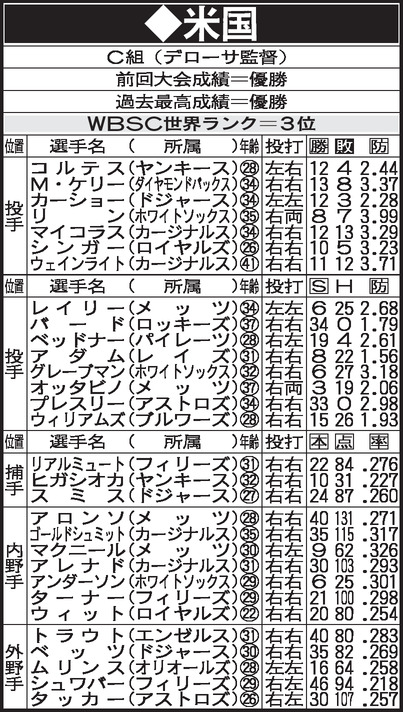 ◆米国
C組（デローサ監督）
前回大会成績＝優勝
過去最高成績＝優勝
WBSC世界ランク＝3位
位置 選手名（所属）年齢 投打 勝 敗 防
投手
コルテス（ヤンキース）㉘ 左右 12 4 2.44
M・ケリー（ダイヤモンドバックス）㉞ 右右 13 8 3.37
カーショー（ドジャース）㉞ 左左 12 3 2.28
リン（ホワイトソックス）㉟ 右両 8 7 3.99
マイコラス（カージナルス）㉞ 右右 12 13 3.29
シンガー（ロイヤルズ）㉖ 右右 10 5 3.23
ウェインライト（カージナルス）㊶ 右右 11 12 3.71
位置 選手名（所属）年齢 投打 S H 防
投手
レイリー（メッツ）㉞ 左左 6 25 2.68
バード（ロッキーズ）㊲ 右右 34 0 1.79
ベッドナー（パイレーツ）㉘ 右左 19 4 2.61
アダム（レイズ）㉛ 右右 8 22 1.56
グレーブマン（ホワイトソックス）㉜ 右右 6 27 3.18
オッタビノ（メッツ）㊲ 右両 3 19 2.06
プレスリー（アストロズ）㉞ 右右 33 0 2.98
ウィリアムズ（ブルワーズ）㉘ 右右 15 26 1.93
位置 選手名（所属）年齢 投打 本 点 率
捕手
リアルミュート（フィリーズ）㉛ 右右 22 84 .276
ヒガシオカ（ヤンキース）㉜ 右右 10 31 .227
スミス（ドジャース）㉗ 右右 24 87 .260
内野手
アロンソ（メッツ）㉘ 右右 40 131 .271
ゴールドシュミット（カージナルス）㉟ 右右 35 115 .317
マクニール（メッツ）㉚ 右左 9 62 .326
アレナド（カージナルス）㉛ 右右 30 103 .293
アンダーソン（ホワイトソックス）㉙ 右右 6 25 .301
ターナー（フィリーズ）㉙ 右右 21 100 .298
ウィット（ロイヤルズ）㉒ 右右 20 80 .254
外野手
トラウト（エンゼルス）㉛ 右右 40 80 .283
ベッツ（ドジャース）㉚ 右右 35 82 .269
ムリンス（オリオールズ）㉘ 左左 16 64 .258
シュワバー（フィリーズ）㉙ 右左 46 94 .218
タッカー（アストロズ）㉖ 右左 30 107 .257